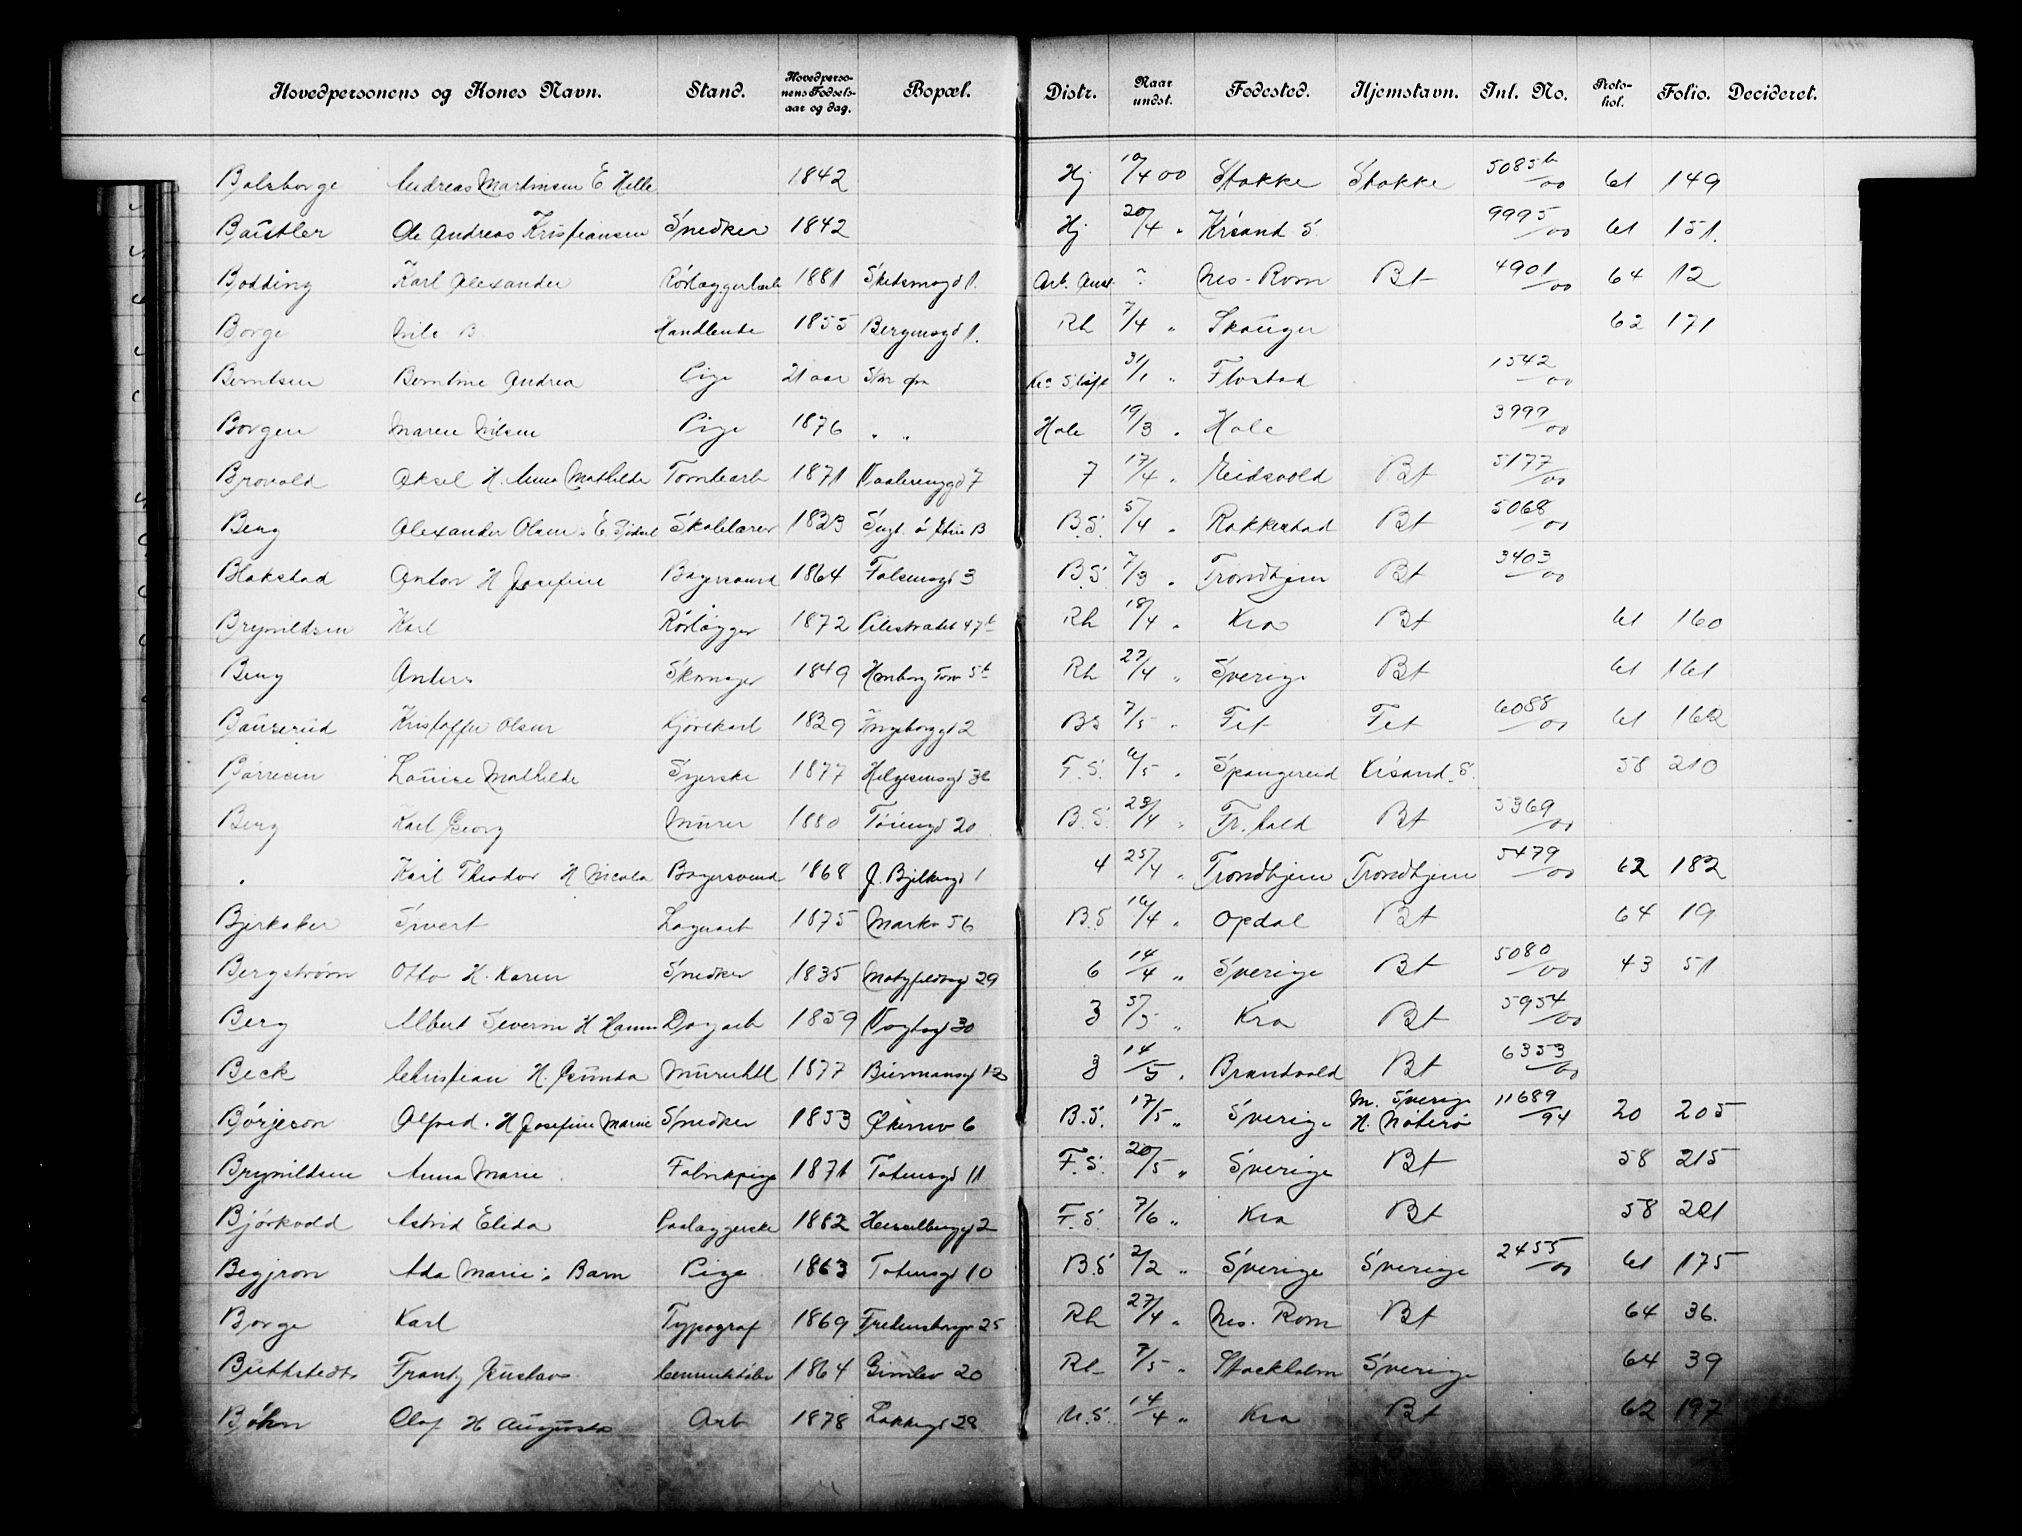 Hovedpersonens og Kones Navn. Stand. Hovedpersonens Fødselsaar og dag. Bopæl. Distr. Naar undst. Fødested. Hjemstavn. Int. No. Protokol. Folio. Decideret.
Balsborge Andreas Martinsen E Helle 1842 Hj 10/4 00 Stokke Stokke 5085b/00 61 149
Baustler Ole Andreas Kristiansen Snedker 1842 Hj 20/4 " Krsand S. 9995/00 61 151.
Bodding Karl Alexander Rørlæggerlærl 1881 Skedsmogd 1. Arb. Anst. ? Nes-Rom Bt 4901/00 64 12
Borge Nils B. Handlende 1855 Bergensgd 1. Rh 7/4 " Skauger 62 171
Berntsen Berntine Andrea Pige 21 aar Skr Ø Ka Stift 31/1 " Flostad 1542/00
Borgen Maren Nilsen Pige 1876 " " Hole 19/3 " Hole 3999/00
Brovold Aksel H. Anna Mathilde Tomtearb 1871 Vaalerenggd 7 7 17/4 " Eidsvold Bt 5177/00
Berg Alexander Olsen E. Skolelærer 1823 B.S. 5/4 " Rakkestad Bt 5068/00
Blakstad Anton H Josefine Bagersvend 1864 Falsensgd 3 B.S. 7/3 " Trondhjem Bt 3403/00
Brynildsen Karl Rørlægger 1872 Pilestrædet 47b Rh 18/4 " Kra Bt 61 160
Berg Anders Skomager 1849 Hamborg Torv 5b Rh 27/4 " Sverige Bt 61 161
Bauserud Kristoffer Olsen Kjørekarl 1829 Ingeborggd 2 BS 7/5 " Fet Fet 6088/00 61 162
Børresen Louise Mathilde Syerske 1877 Helgesensgd 36 F.S. 6/5 " Spangereid Krsand. S. 58 210
Berg Karl Georg Murer 1880 Tøiengd 20 B.S. 23/4 " Fr.hald Bt 5369/00
" Karl Theodor H Nicola Bagersvend 1868 J. Bjelkesgd 1 4 25/4 " Trondhjem Trondhjem 5479/00 62 182
Bjerkaker Sivert Lagerarb 1875 Markv 56 B.S 16/4 " Opdal Bt 64 19
Bergstrøm Otto H. Karen Snedker 1835 Motzfeldtsgd 29 6 14/4 " Sverige Bt 5080/00 43 51
Berg Albert Severin H Hanna Dagarb 1859 Vogtsgd 30 3 5/5 " Kra Bt 5954/00
Beck Christian H. Gunda Murerhdl 1877 Biermansgd 12 3 14/5 " Brandvold Bt 6353/00
Børjeson Alfred. H Josefine Marie Snedker 1853 Økernv 6 B.S. 17/5 " Sverige M. Sverige H. Nøterø 11689/94 20 205
Brynildsen Anna Marie Fabrikpige 1871 Totensgd 11 F.S. 20/5 " Sverige Bt 58 215
Bjørkvold Astrid Elida Paalæggerske 1882 Hesselberggd 2 F.S. 7/6 " Kra Bt 58 221
Begjron Ada Marie; Barn Pige 1863 Totensgd 10 B.S 2/2 " Sverige Sverige 2455/00 61 175
Borge Karl Typograf 1869 Fredensborgv 25 Rh 27/4 " Nes. Rom Bt 64 36.
Buttstedt Frantz Gustav 1864 Gimlev 20 Rh 7/5 " Stockholm Sverige 64 39
Bøhn Olaf H Augusta Arb 1878 Lakkegd 28 U.S. 14/4 " Kra Bt 62 197